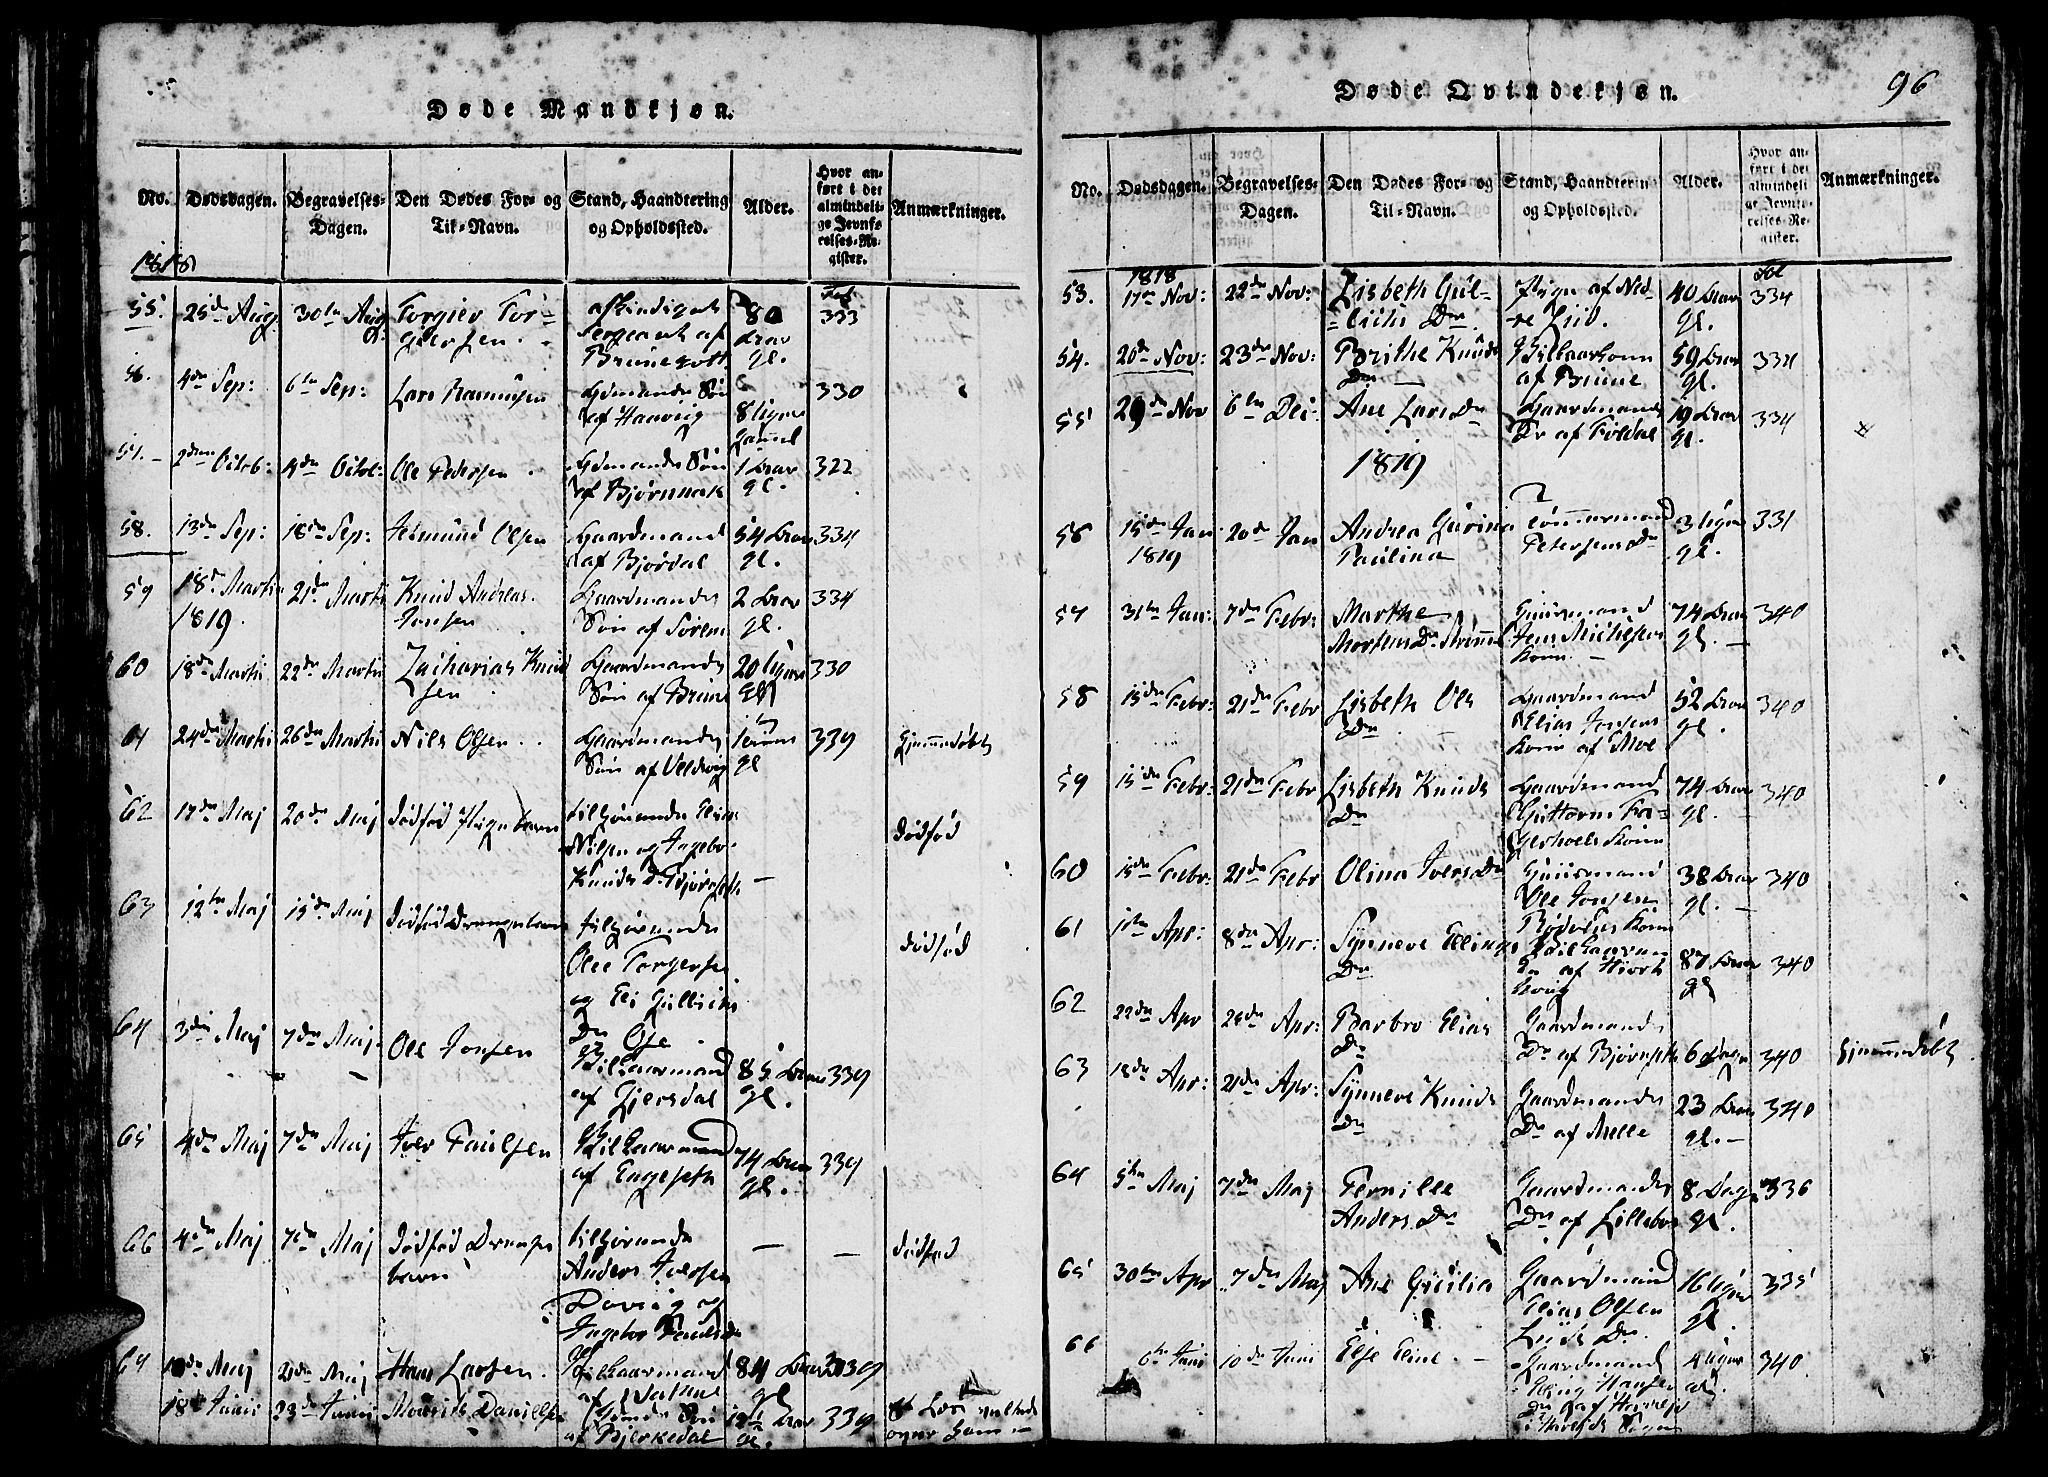 Døde Mandkjøn.
No. Dødsdagen. Begravelses-Dagen. Den Dødes For- og Til-Navn. Stand, Haandtering og Opholdssted. Alder. Hvor anført i det almindelige Jevnførelses-Register. Anmærkninger.
1818
Fol
55. 25de Aug 30te Aug Torgier Tor-
gersen. afskindiget
Sergeant af
80
Aar
gl. 333
56. 4de Sep: 6te Sep: Lars Rasmusen Gdmands Søn
af Haavig 8 Uger
gammel 330
57. 2den Octob: 4de Octob: Ole Pedersen Gdmands Søn
af Bjørnnak 1 Aar
gl. 322
58. 13de Sep: 18de Sep: Olsen Gaardmand
af Bjørdal 54 Aar
gl. 334
59 18de Martii
1819. 21de Marti Knud Andreas
Jonsen Gaardmands
Søn af Sørem 2 Aar
gl. 334
60 18de Martii 22de Martii Zacharias Knud
sen Gaardmands
Søn af Brune 20 Uger
gl 330
61 24de Martii 26de Martii Nils Olsen Gaardmands
Søn af gl 339 hjemmedøbt
62 17de Maj 20de Maj dødfød Pigebarn tilhørende Elias
Nilsen og Ingebor
Knuds Dr Bjørnseth — dødfød
63 12te Maj 15de Maj dødfød Drengebarn tilhørende
Ole Torgersen
og Eli Gullichs
Dr Ose dødfød
64 3die Maj 7de Maj Ole Jonsen Vilkaarmand
af Gjersdal 85 Aar
gl. 339
65 4de Maj 7de Maj Iver Paulsen Vilkaarmand
af Engeseth 74 Aar
gl. 339
66 4de Maj 7de Maj dødfød Drenge
barn tilhørende
Anders Iversen
og
Ingebor Pauls Dr — — dødfød
67 Maj 21de Maj Hans Larsen. Vilkaarmand
af 84 Aar
gl 339
18de Junii 23de Junii Mourits Danielsen Gdmands Søn
af Bjerkedal Aar
gl. 339 et Læs veltede
over ham
Døde Qvindekjøn. 96
No. Dødsdagen. Begravelses-Dagen. Den Dødes For- og Til-Navn. Stand, Haandtering og Opholdssted. Alder. Hvor anført i det almindelige Jevnførelses-Register. Anmærkninger.
1818 Fol
53. 17de Nov: 22de Nov: Lisbeth Gul-
lichs Dr Pige af Ned-
re Lid. 40 Aar
gl. 334
54. 20de Nov: 23de Nov: Brithe Knuds
Dr Vilkaarkone
af Brune 59 Aar
gl. 334
55 29de Nov 6te Dec: Ane Lars Dr Gaardmands
Dr af Foldal 19 Aar
gl. 334
1819
56 15de Jan
1819 20de Jan Andrea Gurina
Paulina Tømmermand
Petersens Dr 3 Uger
gl. 331
57 31te Jan: 7de Febr: Marthe
Mortens Dr Huusmand
Jens Michelsens
Kone 74 Aar
gl. 340
58 15de Febr: 21de Febr Lisbeth Ols
Dr Gaardmand
Elias Jonsens
Kone af Moe 52 Aar
gl. 340
59 15de Febr: 21de Febr Lisbeth Knuds
Dr Gaardmand
Guttorm
Kone 74 Aar
gl. 340
60 15de Febr: 21de Febr Olina Ivers Dr Huusmand
Ole Jonsen
Kone 38 Aar
gl. 340
61 1ste Apr: 8de Apr: Synneve Ellings
Dr
af
87 Aar
gl 340
62 22de Apr 25de Apr: Barbro Elias
Dr Gaardmands
Dr af Bjørnseth 6 Dage 340 hjemmedøbt
63 18de Apr: 21de Apr: Synneve Knuds
Dr Gaardmands
Dr af Melle 23 Aar
gl. 340
64 5te Maj 7de Maj Pernille
Anders Dr Gaardmands
Dr af Lillebø 8 Dage
gl. 336
65 30te Apr 7de Maj Ane Cicilia Gaardmand
Elias Olsen
Lids Dr 16 Uger
gl 335
66 6te Juni 10de Juni Else Eline Gaardmand
Hansen
Dr af
4 Uger
gl. 340